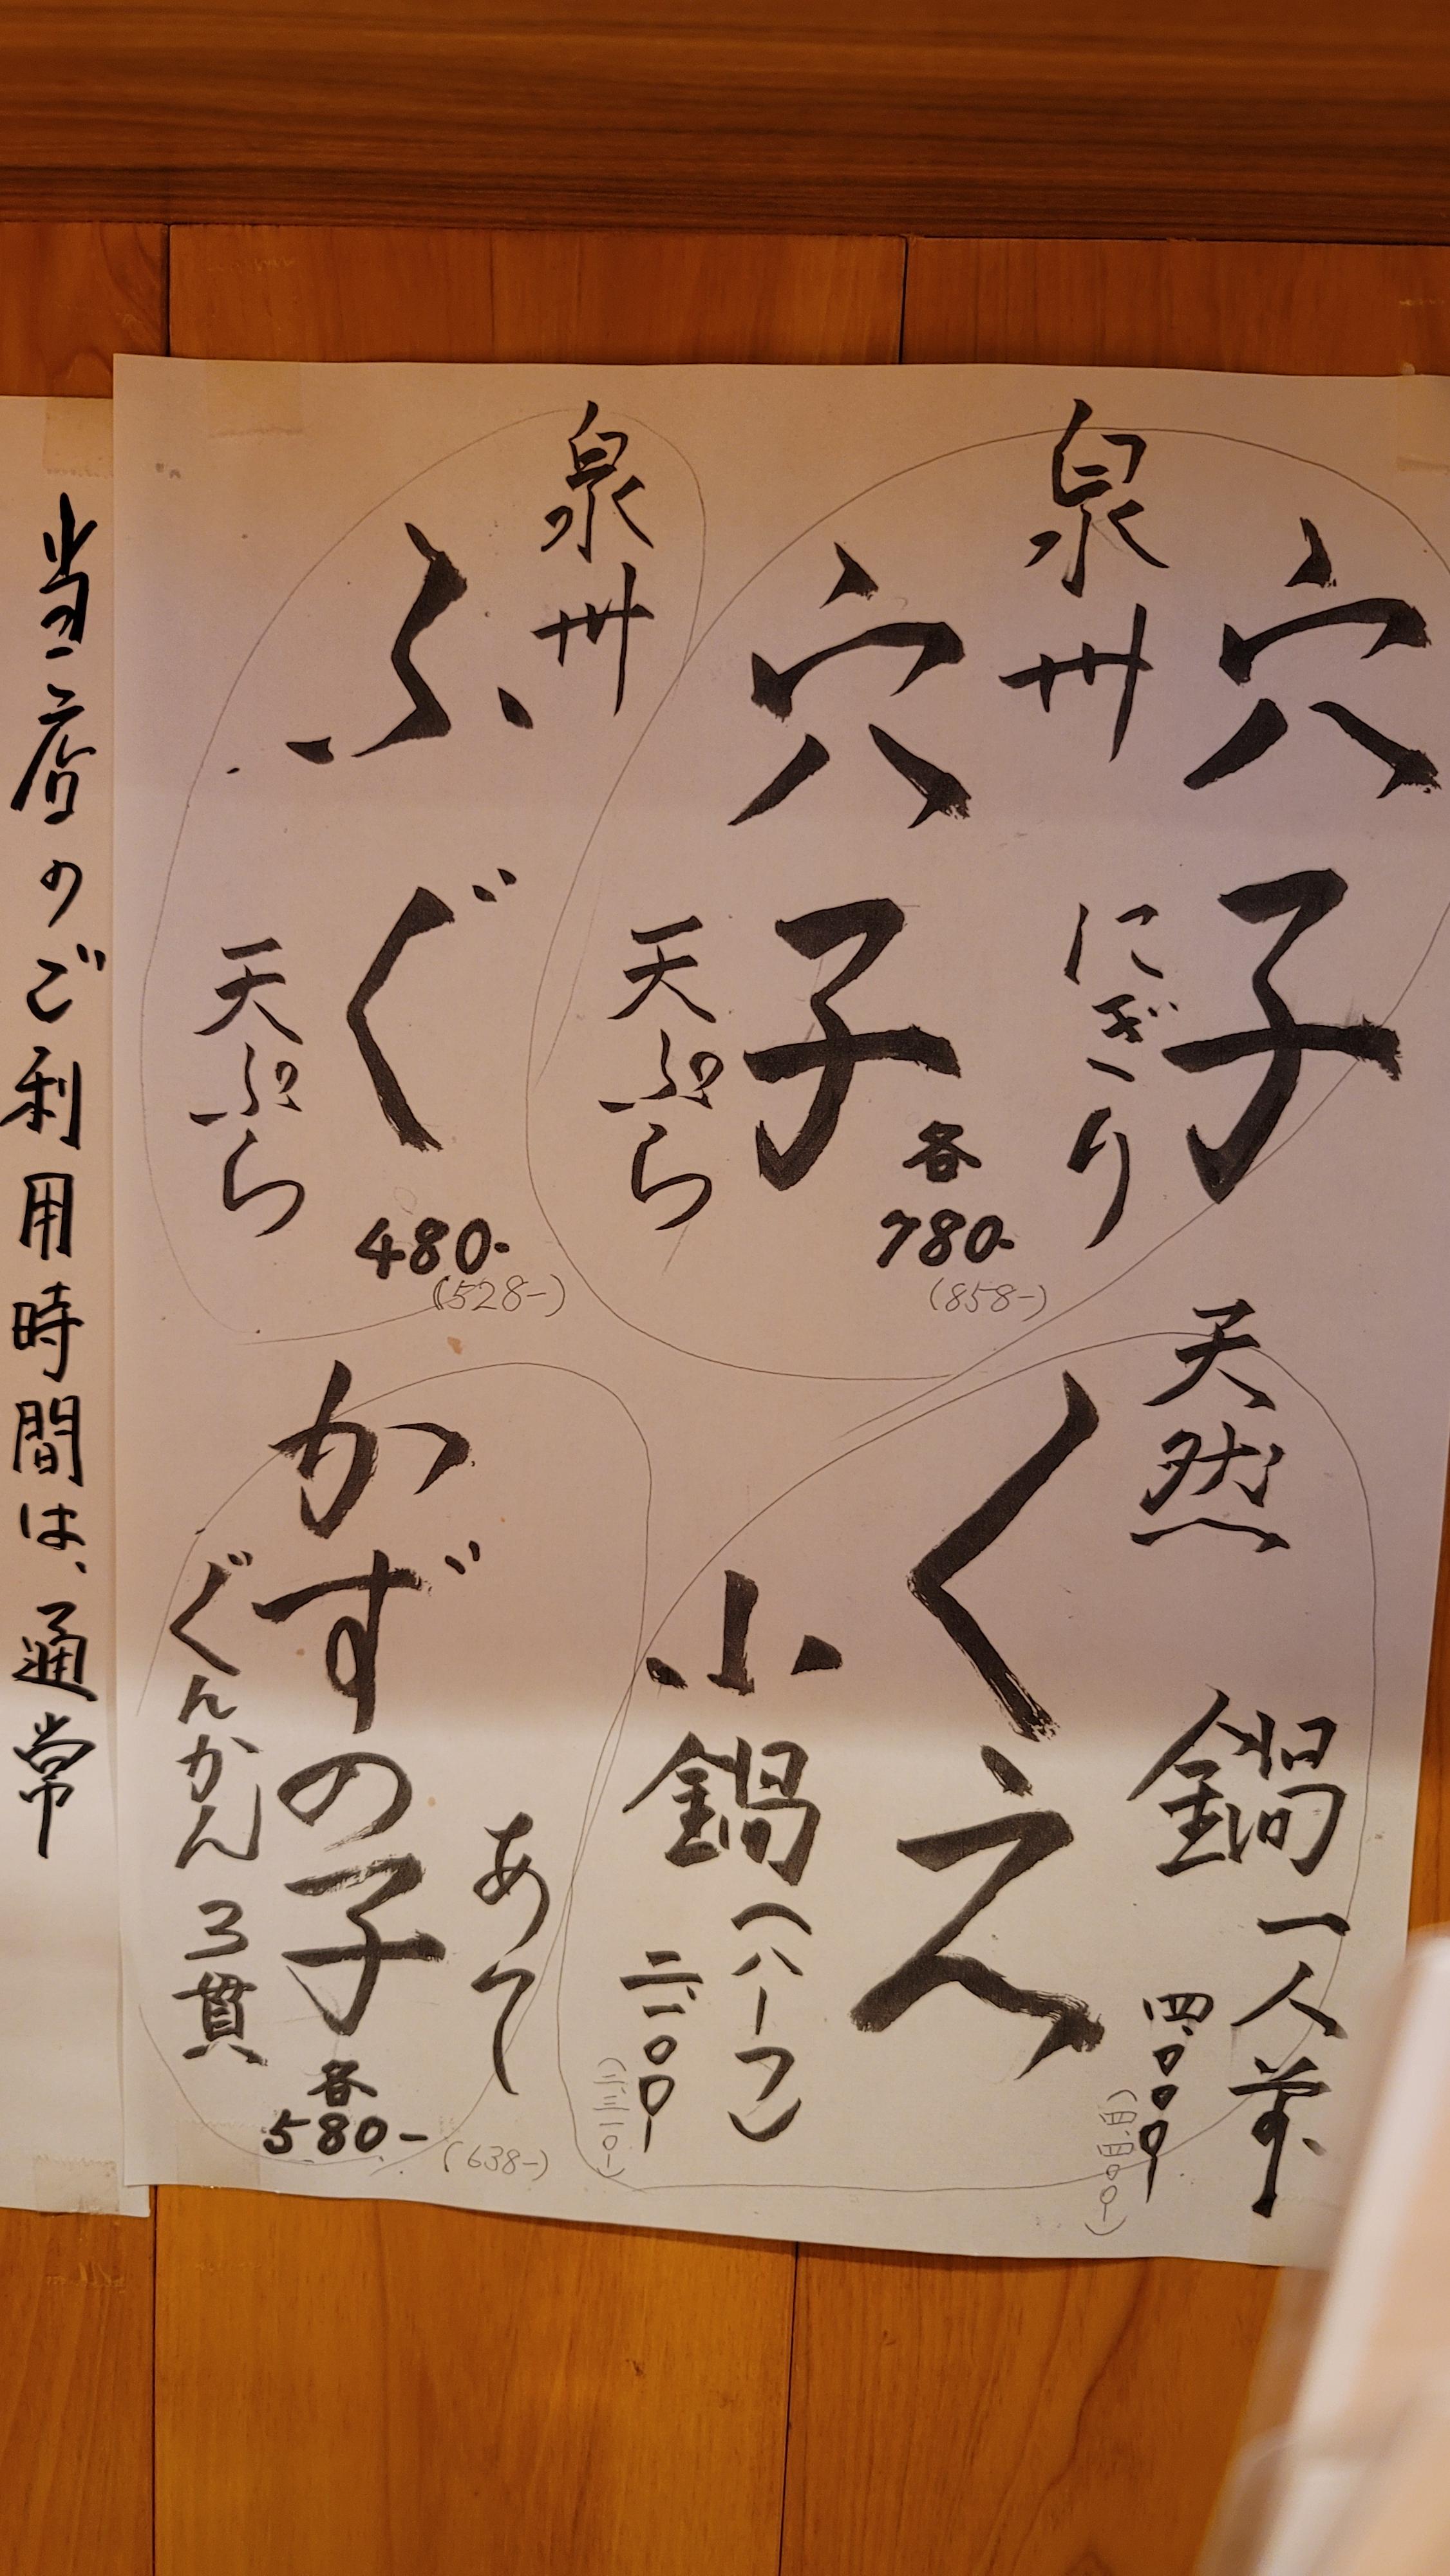 泉州
穴子
にぎり
穴子
天ぷら
各
780-
(858-)
泉州
ふぐ
天ぷら
480-
(528-)
天然
くえ
鍋一人前
四、〇〇〇-
(四、四〇〇-)
小鍋(ハーフ)
二、一〇〇-
(二、三一〇-)
かずの子
あて
ぐんかん3貫
各
580-
(638-)
当店のご利用時間は、通常